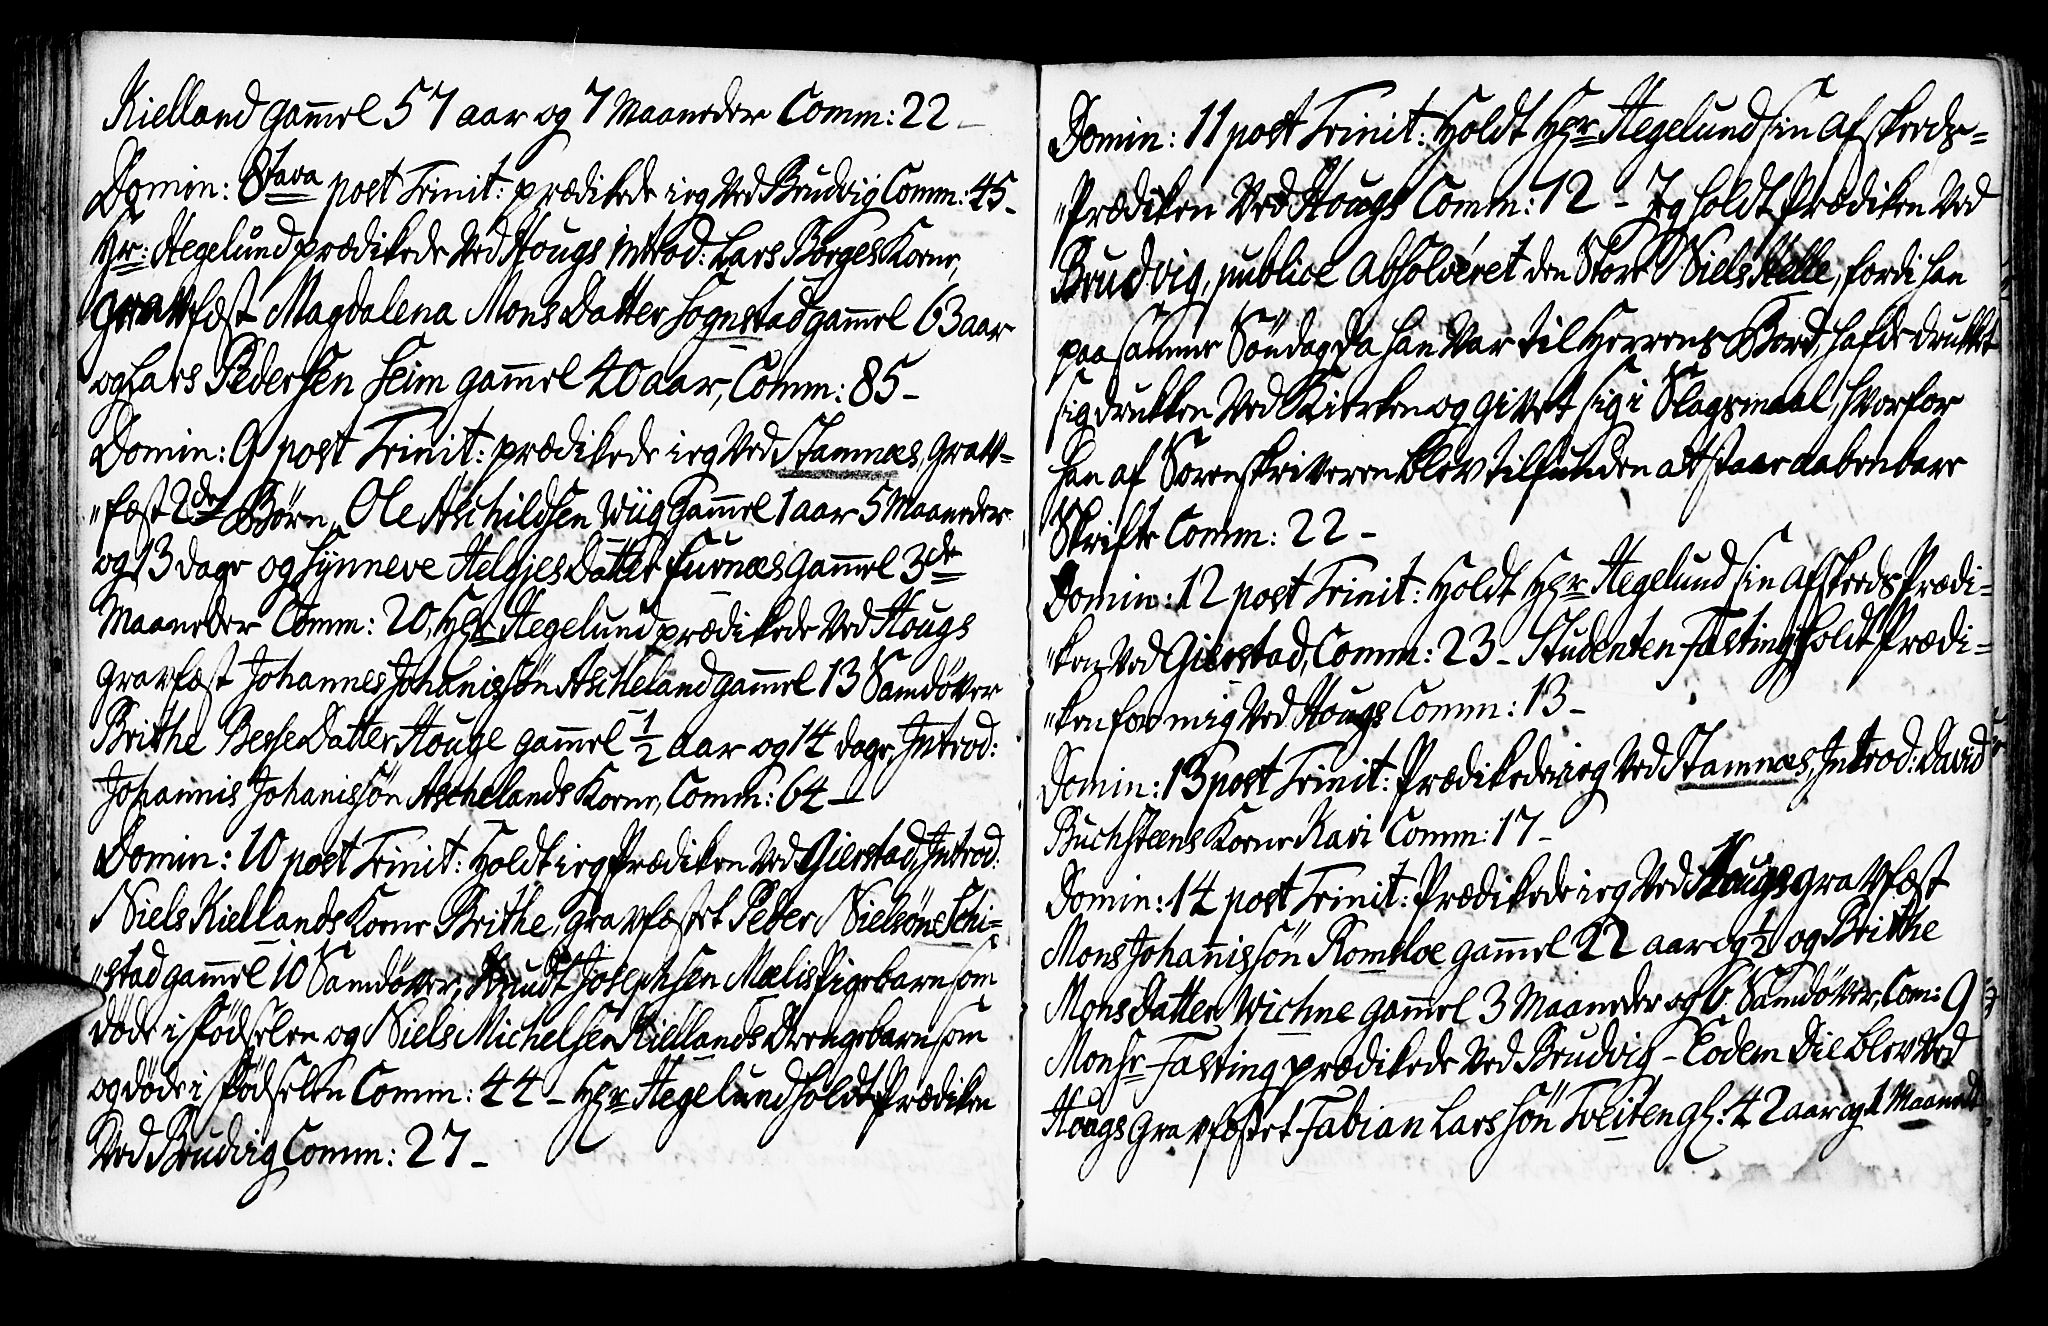 Kielland gam̄el 57 aar og 7 Maaneder Comm: 22 –
Domin: 8tava post Trinit: prædikede ieg Ved Brudvig Comm: 45 –
Hr: Hegelund prædikede Ved Hougs introd: Lars Borges Kone,
gravfæst Magdalena Mons Datter Sognstad gam̄el 63 aar
og Lars Pedersen Seim gam̄el 40 aar, Comm: 85 –
Domin: 9 post Trinit: prædikede ieg Ved Stamnæs, grav=
"fæst 2de Børn, Ole Aschildsen Wiig gam̄el 1 aar 5 Maaneder
og 13 dage og Synneve Helgjes Datter Furnæs gam̄el 3de
Maaneder Comm: 20, Hr Hegelund prædikede Ved Hougs
gravfæst Johannes Johanissøn Ascheland gam̄el 13 Samdøver
Brithe Besse Datter Houge gam̄el ½ aar og 14 dage, Introd:
Johannis Johanissøn Aschelands Kone, Comm: 64 –
Domin: 10 post Trinit: Holdt ieg Prædiken Ved Gierstad, Introd:
Niels Kiellands Kone Brithe, gravfæstet Peder Nielsøn Schi=
"stad gam̄el 10 Samdøver, Knudt Josephsen Mælis Pigebarn som
døde i fødselen og Niels Michelsen Kiellands Drengebarn som
og døde i fødselen Comm: 44 – Hr Hegelund holdt Prædiken
Ved Brudvig Comm: 27 –
Domin: 11 post Trinit: Holdt Hr Hegelund sin Afskeeds=
"Prædiken Ved Hougs Comm: 12 – Jeg holdt Prædiken Ved
Brudvig, publice absolveret den Store Niels Helle, fordi han
paa samme Søndag da han Var til Herrens Bord, hafde drukket
sig drukken Ved Kirken og givet sig i Slagsmaal, hvorfor
han af Sorenskriveren blev tilfunden at staae aabenbare
Skrifte Comm: 22 –
Domin: 12 post Trinit: Holdt Hr Hegelund sin Afskeeds Prædi=
"ken Ved Gierstad, Comm: 23 – Studenten Fasting holdt Prædi=
"ken for mig Ved Hougs Comm: 13 –
Domin: 13 post Trinit: Prædikede ieg Ved Stamnæs, Introd: David
Buchsteens Kone Kari Comm: 17 –
Domin: 14 post Trinit: Prædikede ieg Ved Hougs gravfæst
Mons Johannissøn Romsloe gam̄el 22 aar og ½ og Brithe
Mons Datter Wichne gam̄el 3 Maaneder og 6 Samdøver, Com: 9
Monsr Fasting prædikede Ved Brudvig – Eodem Die blev Ved
Hougs gravfæstet Fabian Larssøn Tveiten gl: 42 aar og 1 Maaned